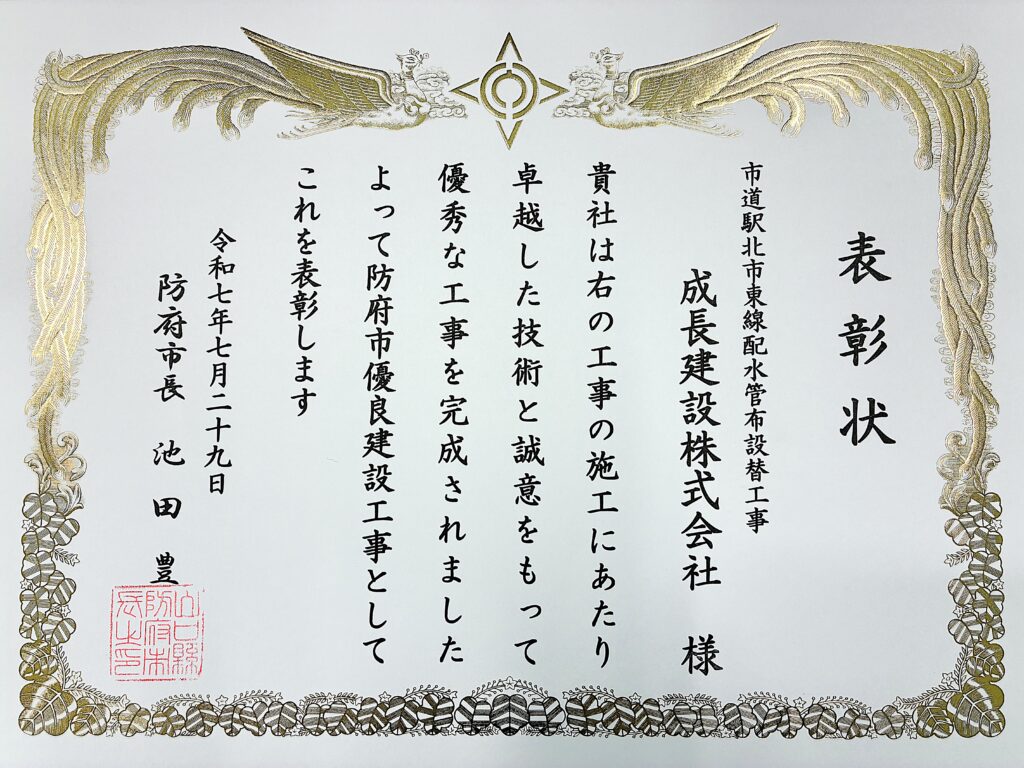 表彰状
市道駅北市東線配水管布設替工事
成長建設株式会社 様
貴社は右の工事の施工にあたり
卓越した技術と誠意をもって
優秀な工事を完成されました
よって防府市優良建設工事として
これを表彰します
令和七年七月二十九日
防府市長 池田 豊
山口縣
防府市
長之印